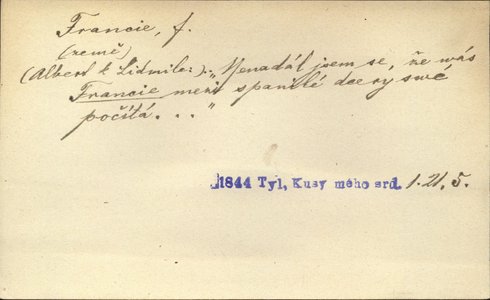 Francie, f.
(země)
(Albert k Lidmile:) „Nenadál jsem se, že vás
Francie mezi spanilé dcery své
počítá. . ."
1844 Tyl, Kusy mého srd. 1. 21, 5.